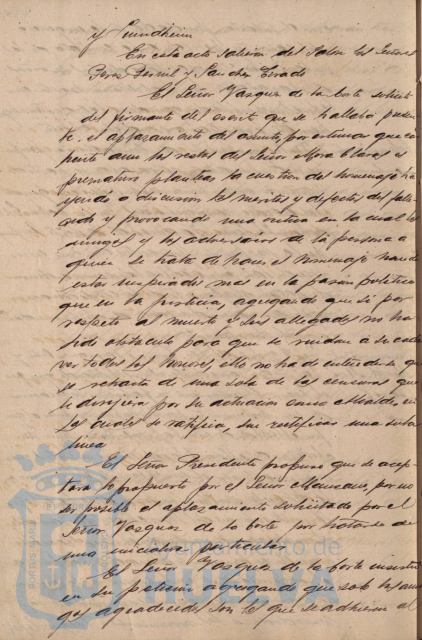 y Sundheim
En este acto salieron del Salon los Señores
Perez Bernil y Sanchez Tirado
El Señor Vazquez de la Corte solicitó
del firmante del escrito que se hallaba presen
te, el aplazamiento del asunto, por entender que ca
liente aun los restos del Señor Mora Claros es
prematuro plantear la cuestion del homenaje ha
yendo a discusion los meritos y defectos del falle
cido y provocando una critica en la cual los
amigos y los adversarios de la persona a
quien se trata de hacer el homenaje han de
estar inspirados mas en la pasion politica
que en la justicia, agregando que si por
respeto al muerto y sus allegados no ha
sido obstaculo para que se rindan a su cada
ver todos los honores, ello no ha de entenderse que
se retracta de una sola de las censuras que
le dirigiera por su actuacion como Alcalde, en
las cuales se ratifica, sin rectificar una sola
linea
El Señor Presidente propuso que se acep
tara lo propuesto por el Señor Marciano, por no
ser posible el aplazamiento solicitado por el
Señor Vazquez de la Corte por tratarse de
una iniciativa particular
El Señor Vazquez de la Corte insistio
en su peticion agregando que solo los ami
gos agradecidos son los que se adhieren al
Ayuntamiento de
HUELVA
PORTUS MARIS